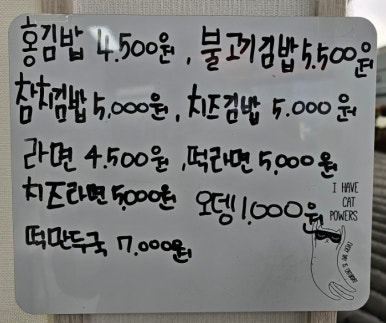 홍김밥 4.500원, 불고기김밥 5.500원
참치김밥 5,000원, 치즈김밥 5.000원
라면 4.500원, 떡라면 5,000원
치즈라면 5,000원 오뎅 1,000원
떡만두국 7.000원
I HAVE
CAT
POWERS